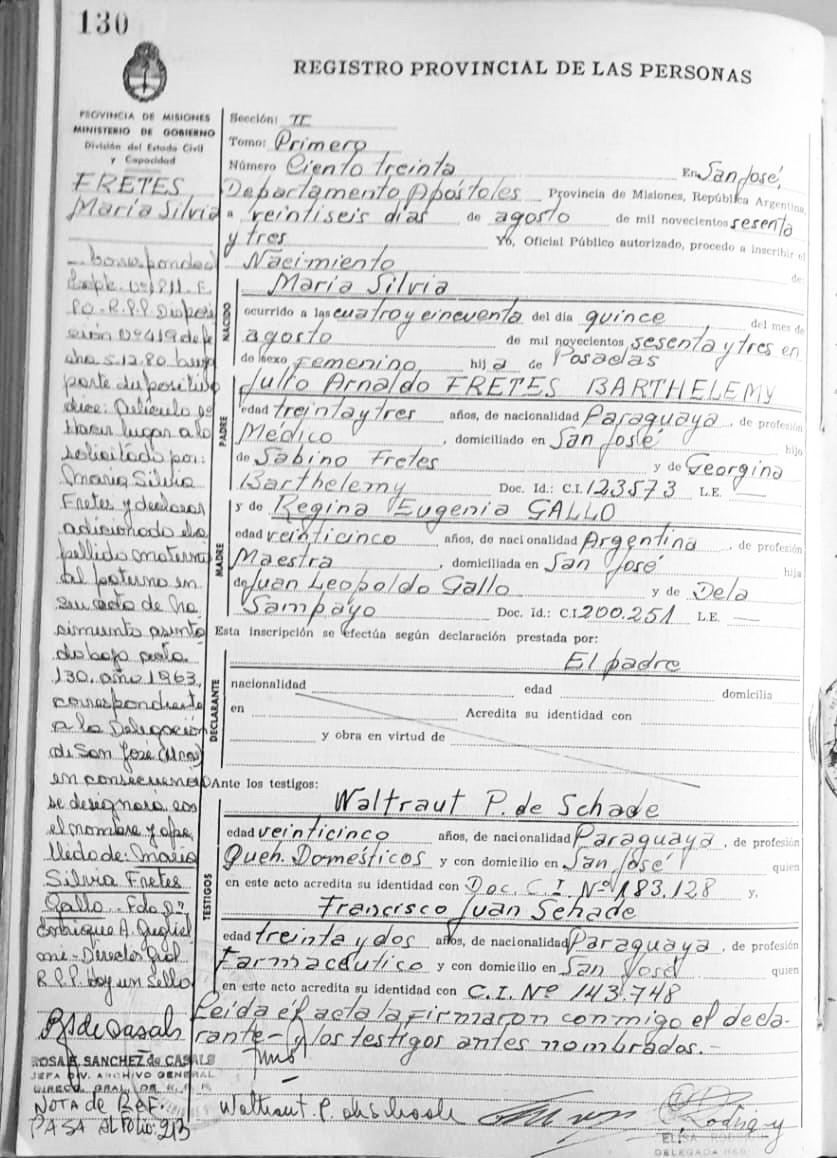 130
REGISTRO PROVINCIAL DE LAS PERSONAS
PROVINCIA DE MISIONES
MINISTERIO DE GOBIERNO
División del Estado Civil
y Capacidad
FRETES
María Silvia
Corresponde al
Expte. 811. E.
PO-R.P.P Disposi
ción Nº 419 de fe
cha 5.12.80 cuya
parte dispositiva
dice: Artículo 1º
Hacer lugar a lo
solicitado por:
María Silvia
Fretes y declarar
adicionado el a
pellido materno
al paterno en
su acta de na
cimiento asenta
da bajo acta
130. año 1963,
correspondiente
a la Delegación
de San José (Mnes)
en consecuencia
se designará con
el nombre y ape
llido de: María
Silvia Fretes
Gallo. Fdo
Enrique A. Gugliel
- Director Gral
R.P.P. Hay un Sello
ROSA E. SANCHEZ de CASALS
JEFA DIV. ARCHIVO GENERAL
DIRECC. GRAL. DE R.P.P.
NOTA de REF.
PASA AL FOLIO: 213
Sección: II
Tomo: Primero
Número Ciento treinta En San José,
Departamento Apóstoles Provincia de Misiones, República Argentina,
a veintiseis días de agosto de mil novecientos sesenta
y tres Yo, Oficial Público autorizado, procedo a inscribir el
Nacimiento de:
NACIDO
María Silvia
ocurrido a las cuatro y cincuenta del día quince del mes de
agosto de mil novecientos sesenta y tres en
de sexo femenino hija de Posadas
PADRE
Julio Arnaldo FRETES BARTHELEMY
edad treinta y tres años, de nacionalidad Paraguaya, de profesión
Médico, domiciliado en San José hijo
de Sabino Fretes y de Georgina
Barthelemy Doc. Id.: C.I. 123573 L.E. —
MADRE
y de Regina Eugenia GALLO
edad veinticinco años, de nacionalidad Argentina, de profesión
Maestra, domiciliada en San José hija
de Juan Leopoldo Gallo y de Dela
Sampayo Doc. Id.: C.I. 200.251 L.E. —
Esta inscripción se efectúa según declaración prestada por:
DECLARANTE
El padre
nacionalidad edad domicilia
en Acredita su identidad con
y obra en virtud de
Ante los testigos:
TESTIGOS
Waltraut P. de Schade
edad veinticinco años, de nacionalidad Paraguaya, de profesión
Queh. Domésticos y con domicilio en San José quien
en este acto acredita su identidad con Doc. C.I. Nº 183.128 y,
Francisco Juan Schade
edad treinta y dos años, de nacionalidad Paraguaya, de profesión
Farmacéutico y con domicilio en San José quien
en este acto acredita su identidad con C.I. Nº 143.748
Leída el acta la firmaron conmigo el decla-
rante- y los testigos antes nombrados.-
Waltraut P. de Schade
ELISA
DELEGADA